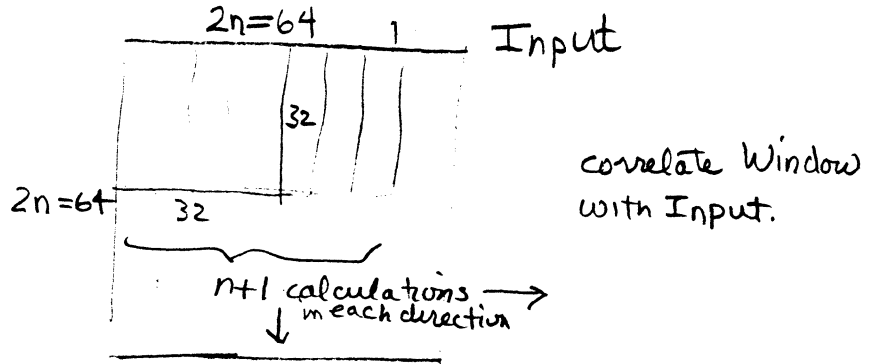 2n=64 1 Input
32
correlate Window
with Input.
2n=64
32
n+1 calculations
in each direction